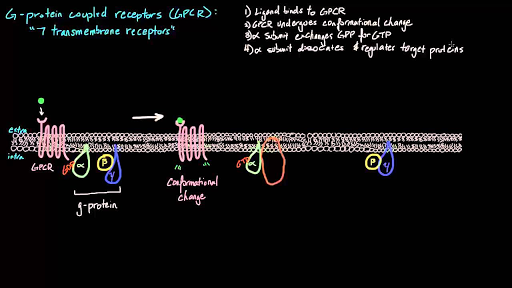 G-protein coupled receptors (GPCR):
"7 transmembrane receptors"
1) Ligand binds to GPCR
2) GPCR undergoes conformational change
3) α subunit exchanges GPP for GTP
4) α subunit dissociates & regulates target proteins
extra
intra
GPCR
α
β
γ
g-protein
Conformational
change
GTP
α
β
γ